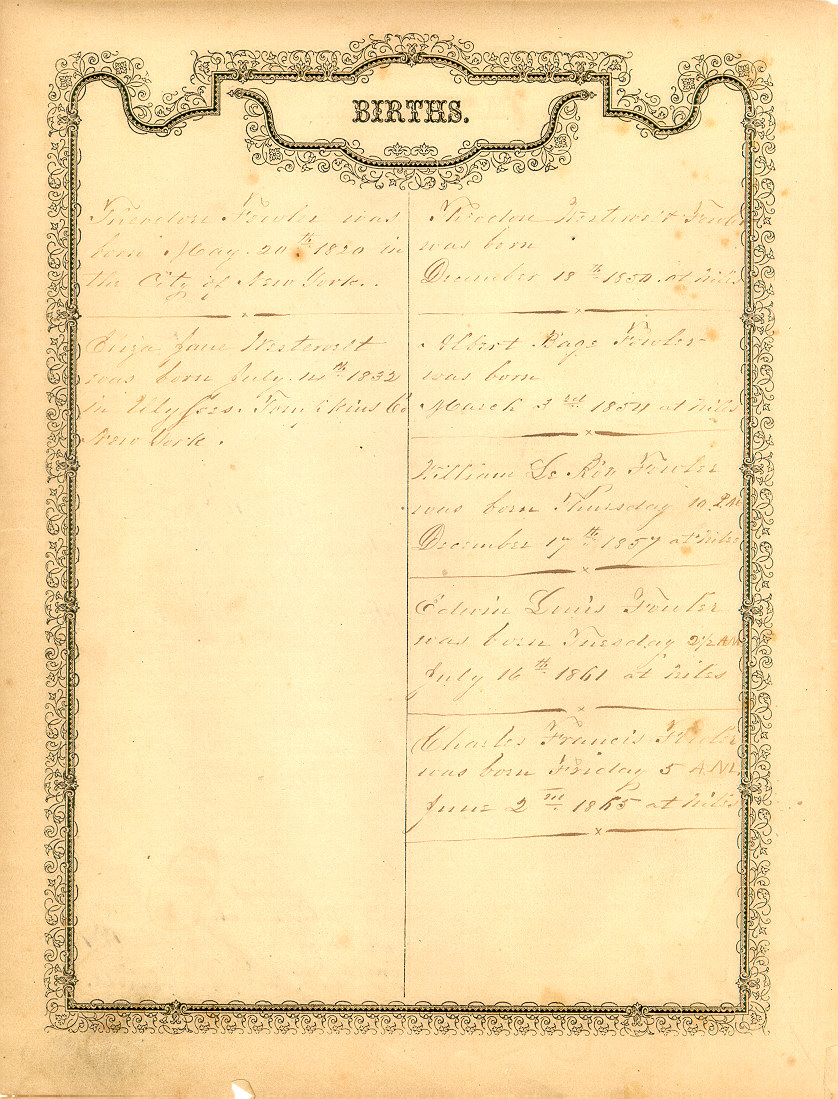 BIRTHS.
Theodore Fowler was
born May 20th 1820 in
the City of New York.
Eliza Jane Westervelt
was born July 14th 1832
in Ulysses. Tompkins Co
New York.
Theodore Westervelt Fowler
was born
December 18th 1850 at Niles
Albert Page Fowler
was born
March 3rd 1854 at Niles
William Le Roy Fowler
was born Thursday 10 P.M.
December 17th 1857 at Niles
Edwin Louis Fowler
was born Tuesday 2 1/2 A.M.
July 16th 1861 at Niles
Charles Francis Fowler
was born Friday 5 A.M.
June 2nd 1865 at Niles